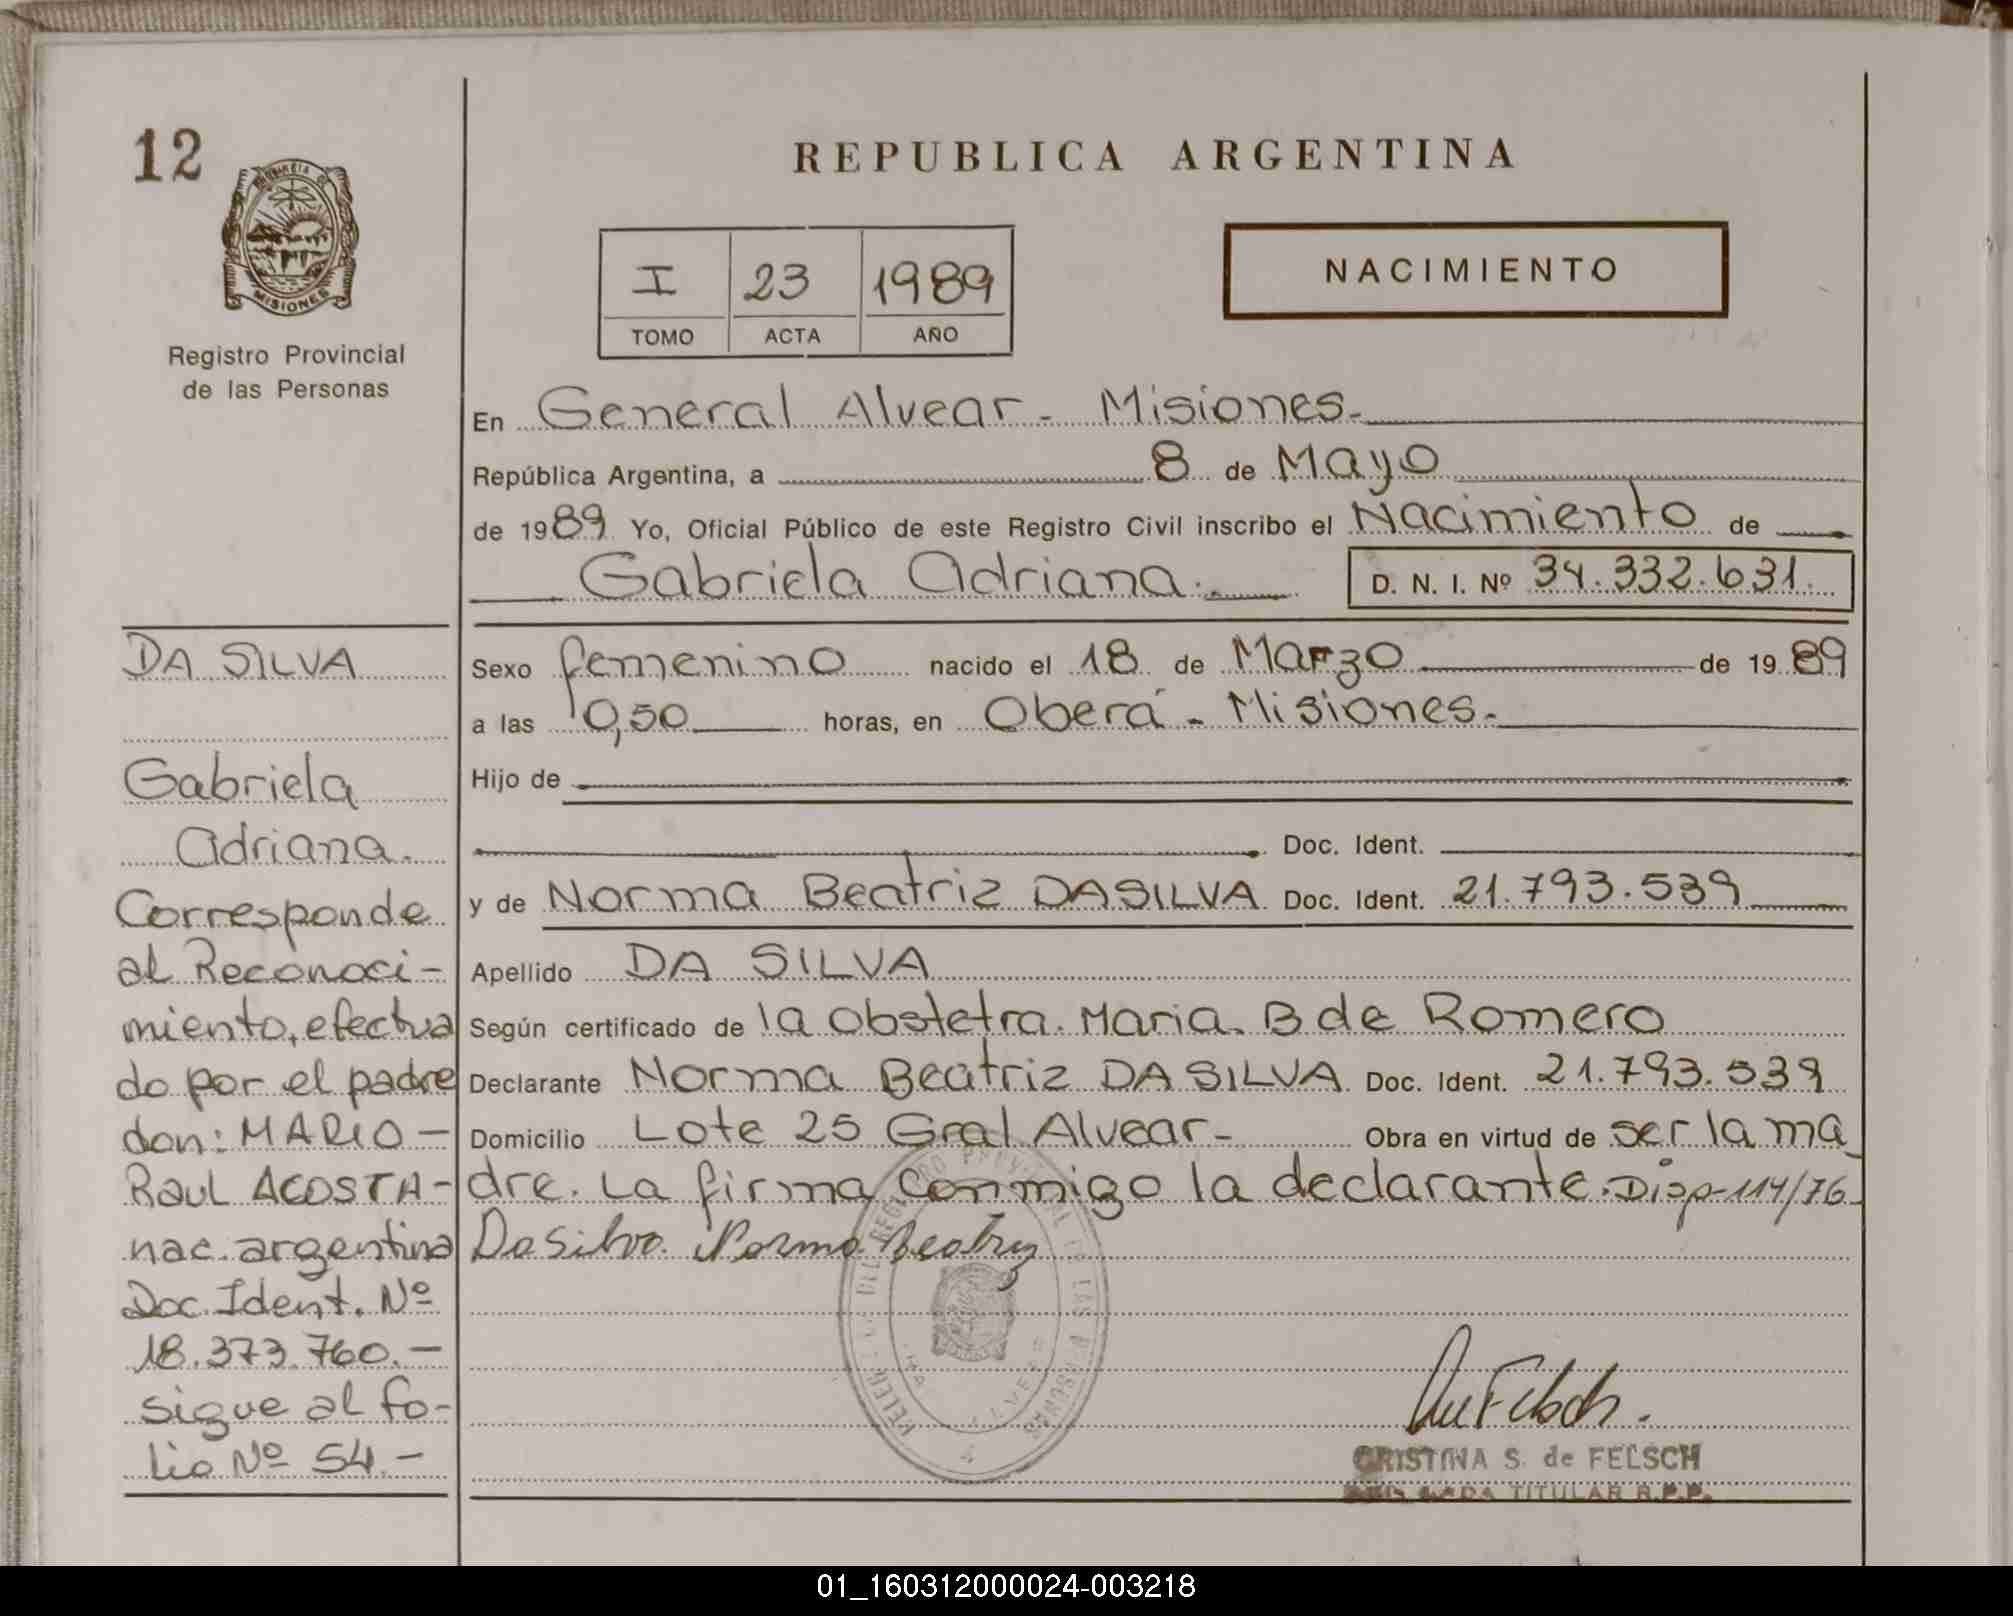 12
MISIONES
Registro Provincial
de las Personas
REPUBLICA ARGENTINA
I 23 1989
TOMO ACTA AÑO
NACIMIENTO
En General Alvear - Misiones.
República Argentina, a 8 de Mayo
de 1989 Yo, Oficial Público de este Registro Civil inscribo el Nacimiento de
Gabriela Adriana. D. N. I. Nº 34.332.631.
Sexo femenino nacido el 18 de Marzo de 1989
a las 10,50 horas, en Oberá - Misiones.
Hijo de
Doc. Ident.
y de Norma Beatriz DASILVA Doc. Ident. 21.793.539
Apellido DA SILVA
Según certificado de la obstetra. Maria. B de Romero
Declarante Norma Beatriz DA SILVA Doc. Ident. 21.793.539
Domicilio Lote 25 Gral Alvear - Obra en virtud de ser la ma
dre. La firma conmigo la declarante. Disp-114/76
Da Silva Norma Beatriz
CRISTINA S. de FELSCH
TITULAR R.P.P.
DA SILVA
Gabriela
Adriana.
Corresponde
al Reconoci-
miento, efectua
do por el padre
don: MARIO -
Raul ACOSTA -
nac. argentina
Doc. Ident. Nº
18.373.760. -
sigue al fo-
lio Nº 54. -
01_160312000024-003218